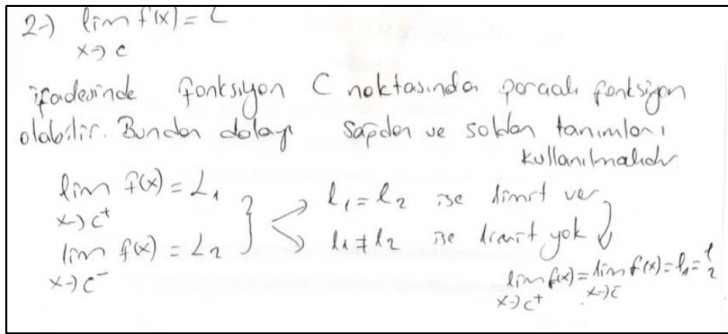 2-) lim f(x) = L
x→c
ifadesinde fonksiyon C noktasında parçalı fonksiyon
olabilir. Bundan dolayı sağdan ve soldan tanımları
kullanılmalıdır
lim f(x) = L₁
x→c⁺
lim f(x) = L₂
x→c⁻
l₁ = l₂ ise limit var
l₁ ≠ l₂ ise limit yok
lim f(x) = lim f(x) = l₁ = l₂
x→c⁺ x→c⁻